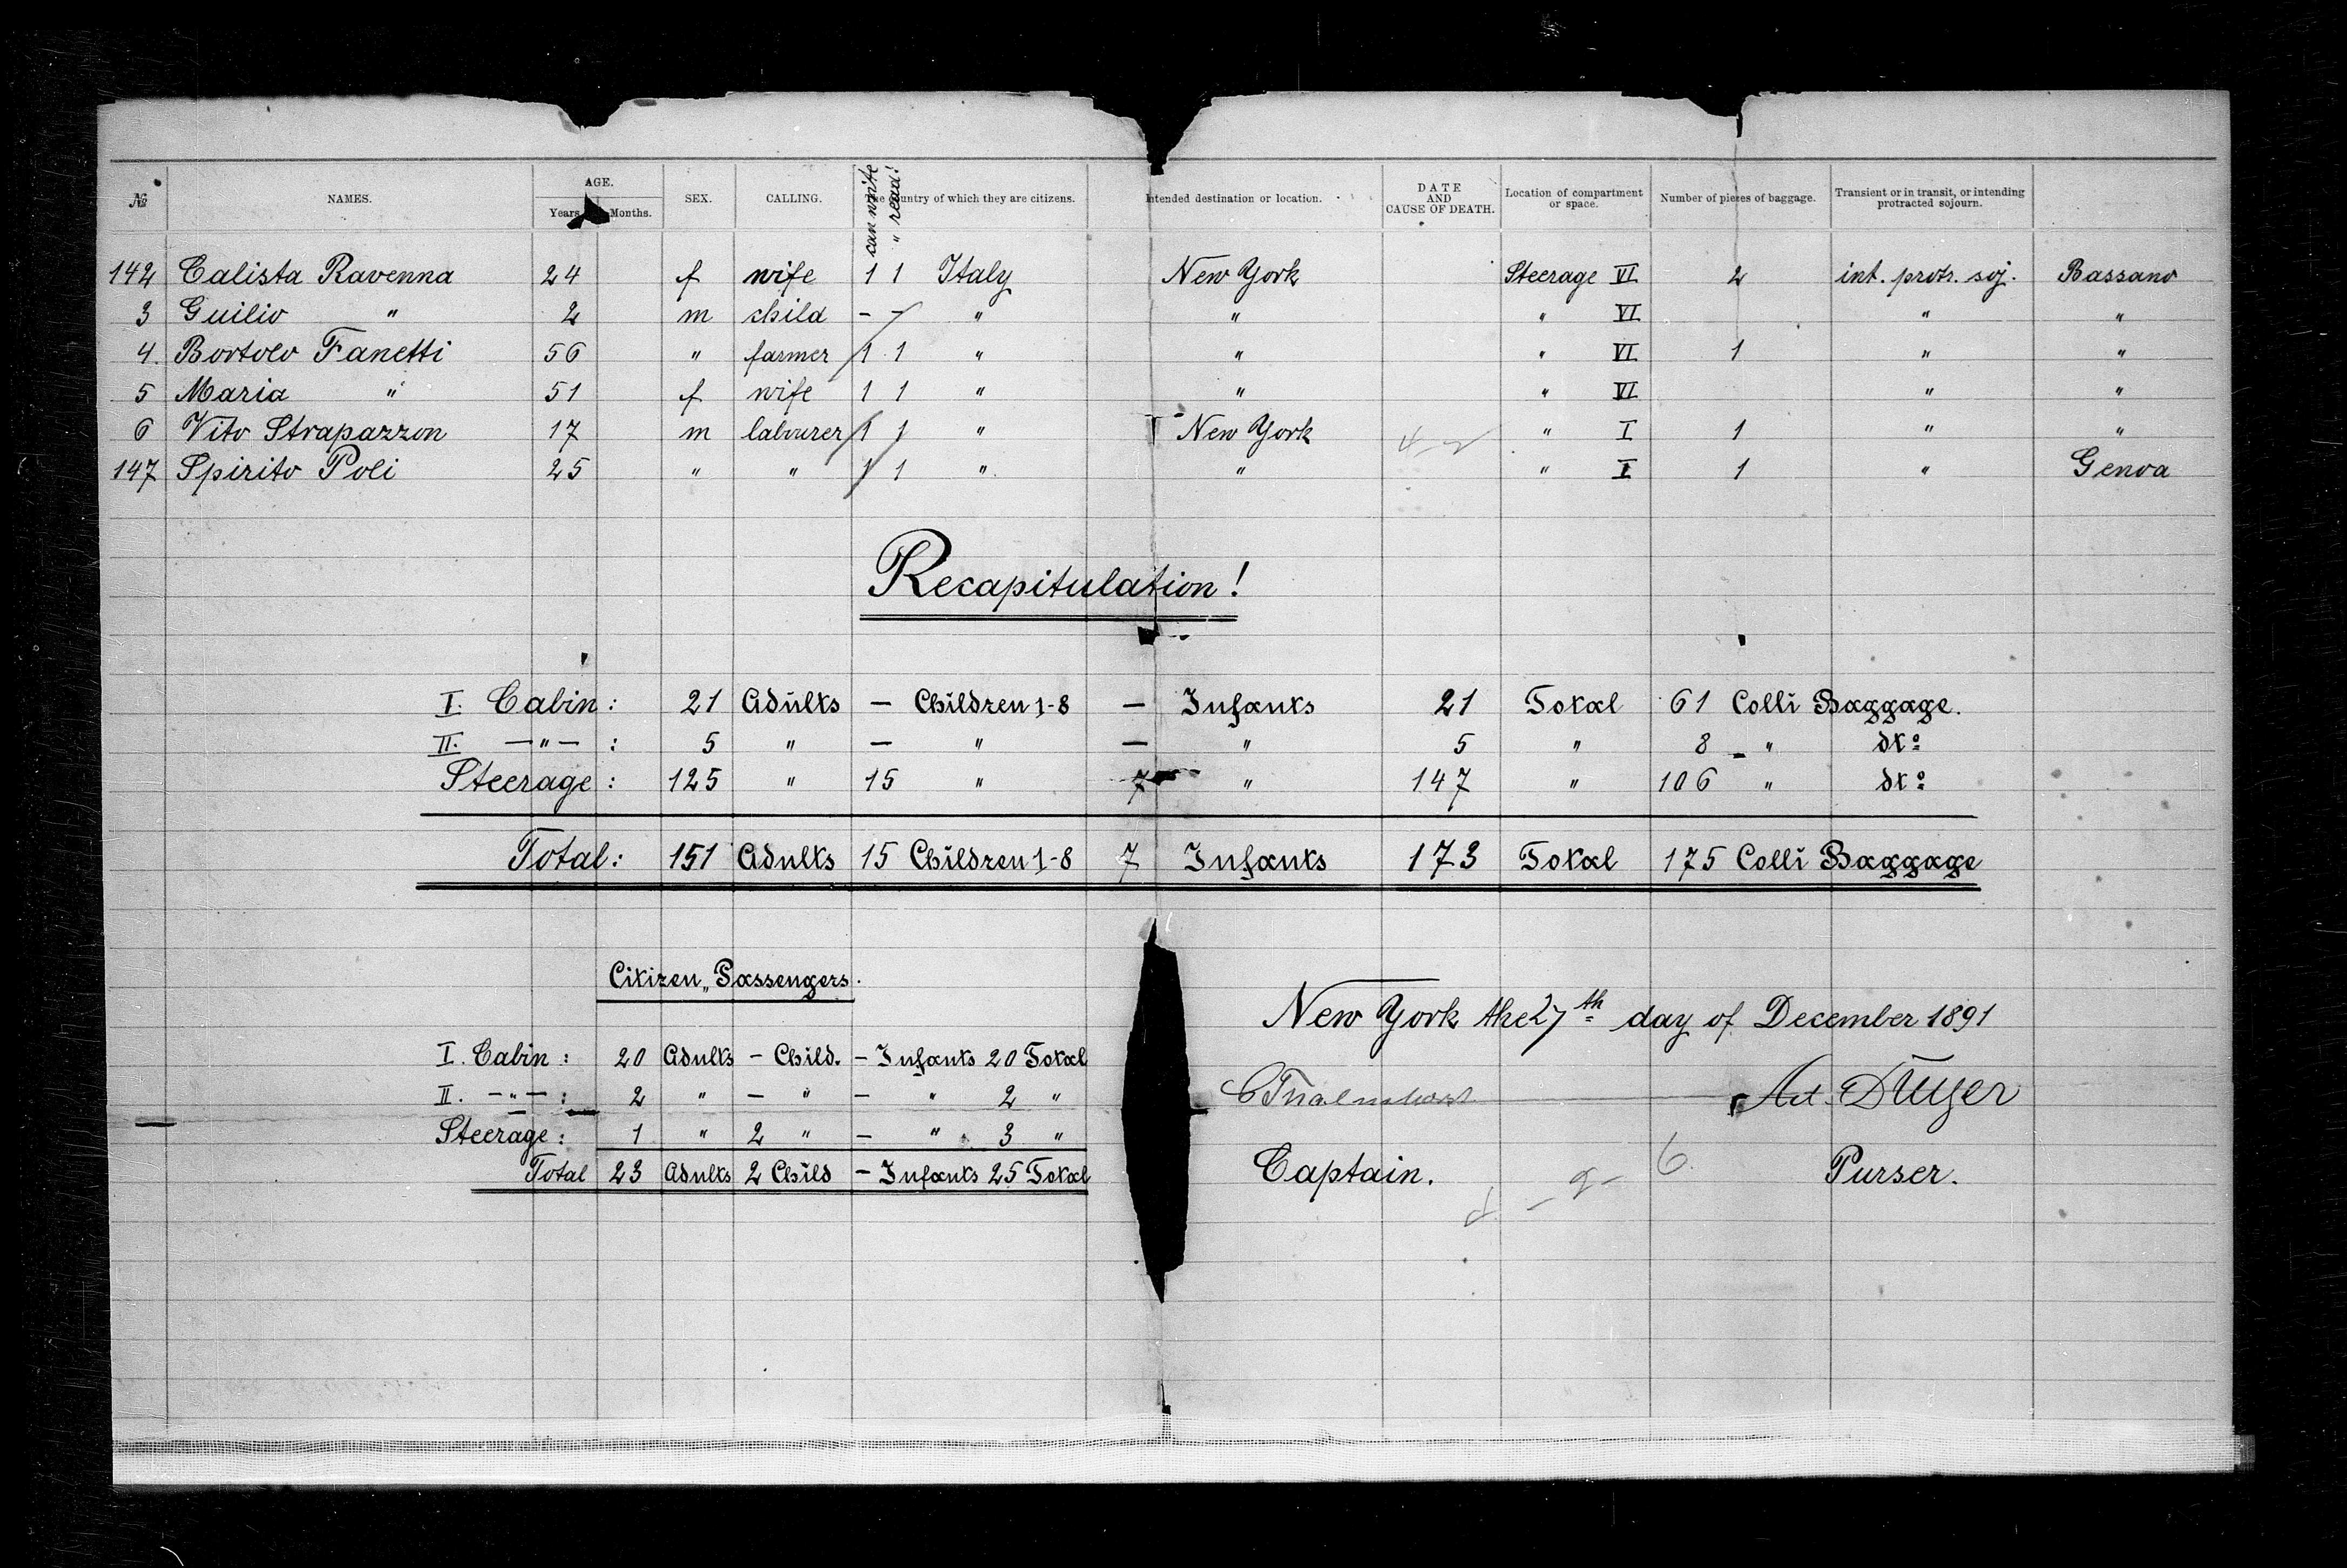 № NAMES. AGE. Years Months. SEX. CALLING. can write " read! The country of which they are citizens. Intended destination or location. DATE AND CAUSE OF DEATH. Location of compartment or space. Number of pieces of baggage. Transient or in transit, or intending protracted sojourn.
142 Calista Ravenna 24 f wife 1 1 Italy New York Steerage VI 2 int. protr. soj. Bassano
3 Guilio " 2 m child - - " " " VI " "
4. Bortolo Fanetti 56 " farmer 1 1 " " " VI 1 " "
5 Maria " 51 f wife 1 1 " " " VI " "
6 Vito Strapazzon 17 m labourer 1 1 " New York " I 1 " "
147 Spirito Poli 25 " " 1 1 " " " I 1 " Genoa
Recapitulation!
I. Cabin: 21 Adults — Children 1-8 — Infants 21 Total 61 Colli Baggage.
II. —"— : 5 " — " — " 5 " 8 " dto
Steerage: 125 " 15 " 7 " 147 " 106 " dto
Total: 151 Adults 15 Children 1-8 7 Infants 173 Total 175 Colli Baggage
Citizen„Passengers.
I. Cabin: 20 Adults — Child. — Infants 20 Total
II. —"— : 2 " — " — " 2 "
Steerage: 1 " 2 " — " 3 "
Total 23 Adults 2 Child — Infants 25 Total
New York the 27th day of December 1891
Captain. Purser.